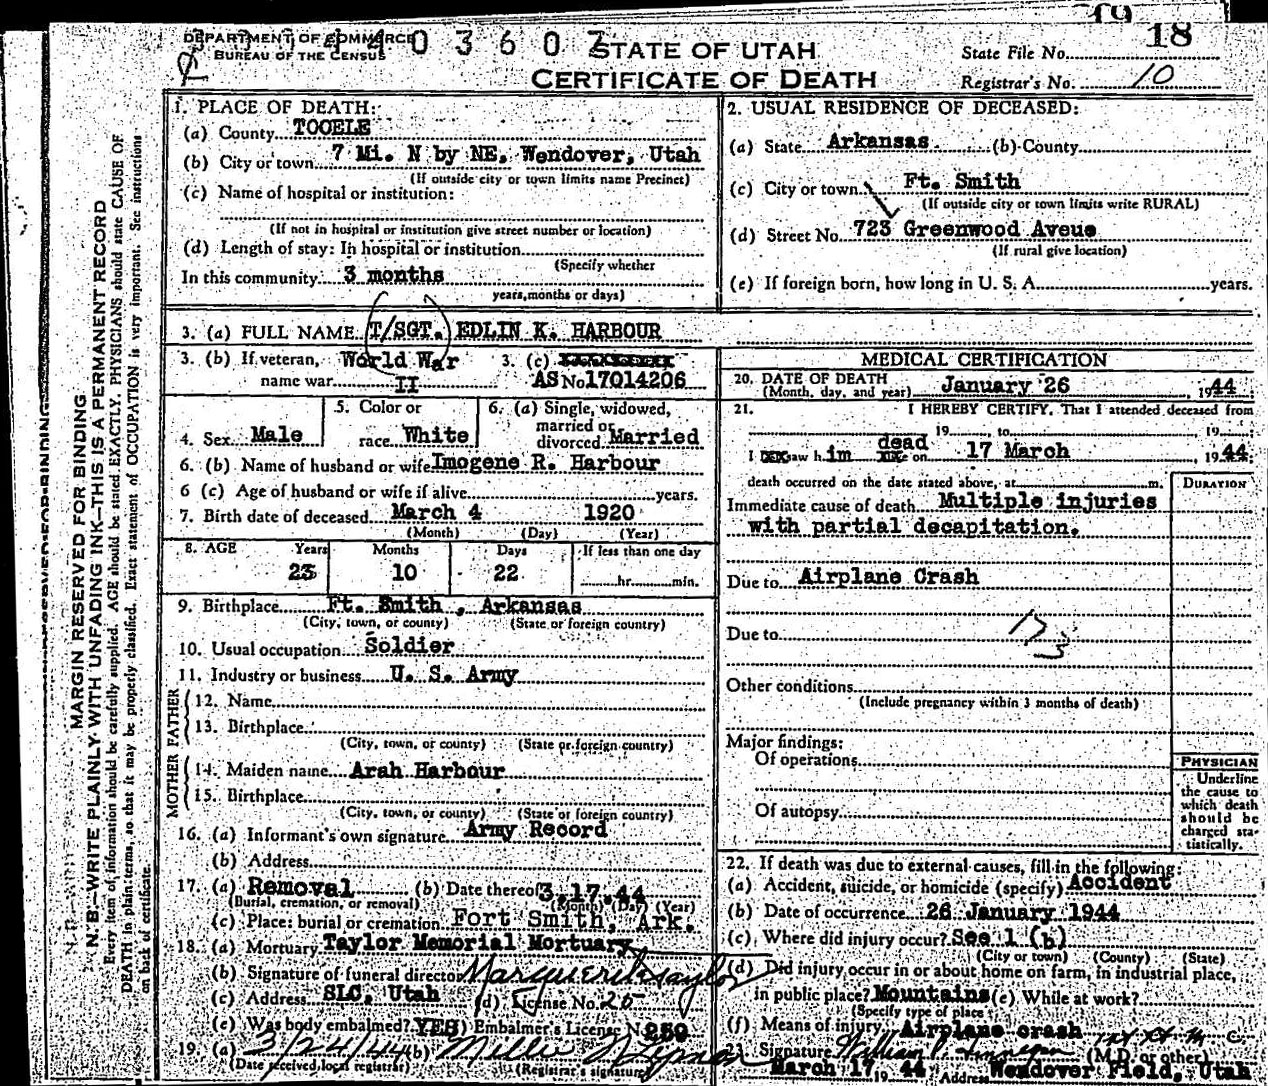 19
18
DEPARTMENT OF COMMERCE
BUREAU OF THE CENSUS
4 4 0 3 6 0 7
STATE OF UTAH
CERTIFICATE OF DEATH
State File No.
Registrar's No. 10
MARGIN RESERVED FOR BINDING
N.B.—WRITE PLAINLY WITH UNFADING INK—THIS IS A PERMANENT RECORD
Every item of information should be carefully supplied. AGE should be stated EXACTLY. PHYSICIANS should state CAUSE OF
DEATH in plain terms, so that it may be properly classified. Exact statement of OCCUPATION is very important. See instructions
on back of certificate.
1. PLACE OF DEATH:
(a) County TOOELE
(b) City or town 7 Mi. N by NE, Wendover, Utah
(If outside city or town limits name Precinct)
(c) Name of hospital or institution:
(If not in hospital or institution give street number or location)
(d) Length of stay: In hospital or institution
(Specify whether
In this community 3 months
years, months or days)
2. USUAL RESIDENCE OF DECEASED:
(a) State Arkansas (b) County
(c) City or town Ft. Smith
(If outside city or town limits write RURAL)
(d) Street No. 723 Greenwood Aveue
(If rural give location)
(e) If foreign born, how long in U. S. A. years.
3. (a) FULL NAME T/SGT. EDLIN K. HARBOUR
3. (b) If veteran, name war World War II
3. (c) AS No 17014206
4. Sex Male
5. Color or race White
6. (a) Single, widowed, married or divorced Married
6. (b) Name of husband or wife Imogene R. Harbour
6 (c) Age of husband or wife if alive years.
7. Birth date of deceased March 4 1920
(Month) (Day) (Year)
8. AGE Years Months Days If less than one day
23 10 22 hr. min.
9. Birthplace Ft. Smith, Arkansas
(City, town, or county) (State or foreign country)
10. Usual occupation Soldier
11. Industry or business U. S. Army
FATHER
12. Name
13. Birthplace
(City, town, or county) (State or foreign country)
MOTHER
14. Maiden name Arah Harbour
15. Birthplace
(City, town, or county) (State or foreign country)
16. (a) Informant's own signature Army Record
(b) Address
17. (a) Removal (b) Date thereof 3 17 44
(Burial, cremation, or removal) (Month) (Day) (Year)
(c) Place: burial or cremation Fort Smith, Ark.
18. (a) Mortuary Taylor Memorial Mortuary
(b) Signature of funeral director Marguerite Taylor
(c) Address SLC, Utah (d) License No. 25
(e) Was body embalmed? YES Embalmer's License No 259
19. (a) 3/24/44 (b) Millie
(Date received local registrar) (Registrar's signature)
MEDICAL CERTIFICATION
20. DATE OF DEATH January 26, 1944
(Month, day, and year)
21. I HEREBY CERTIFY, That I attended deceased from
19 to 19
I saw him dead on 17 March, 1944:
death occurred on the date stated above, at m.
DURATION
Immediate cause of death Multiple injuries
with partial decapitation.
Due to Airplane Crash
Due to
Other conditions
(Include pregnancy within 3 months of death)
Major findings:
Of operations
Of autopsy
PHYSICIAN
Underline
the cause to
which death
should be
charged sta-
tistically.
22. If death was due to external causes, fill in the following:
(a) Accident, suicide, or homicide (specify) Accident
(b) Date of occurrence 26 January 1944
(c) Where did injury occur? See 1 (b)
(City or town) (County) (State)
(d) Did injury occur in or about home on farm, in industrial place,
in public place? Mountains (e) While at work?
(Specify type of place)
(f) Means of injury Airplane crash
Signature William P. Finnegan (M.D. or other)
March 17 1944 Address Wendover Field, Utah